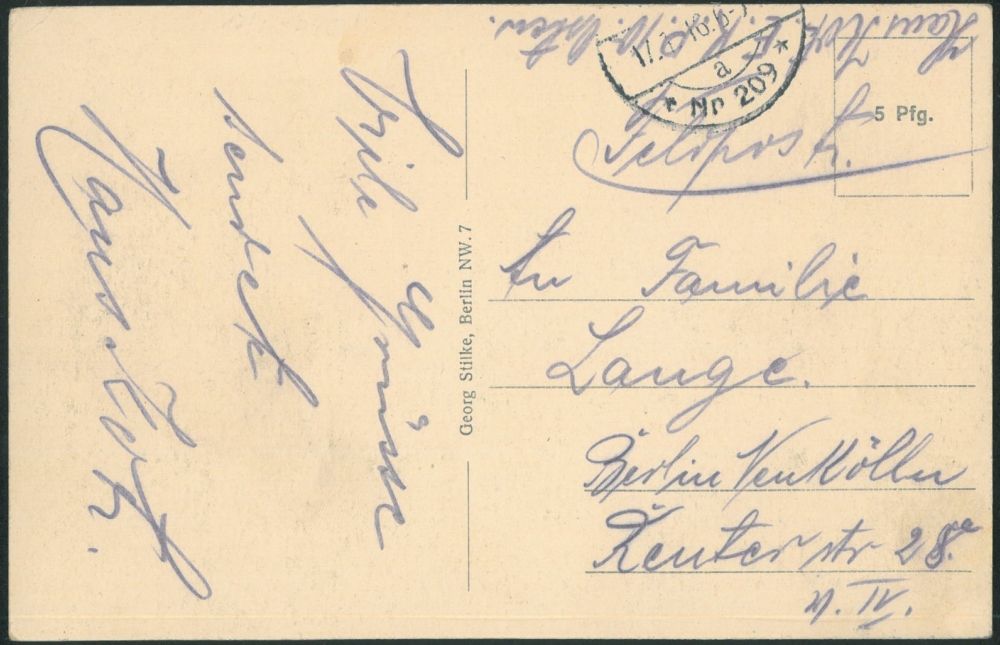 Viele Grüsse
sendet
Hans
Georg Stilke, Berlin NW. 7
17. 16. 6-7
a
* Nr 209 *
5 Pfg.
Feldpost.
An Familie
Lange.
Berlin Neukölln
Reuter str 28.a
v. IV.